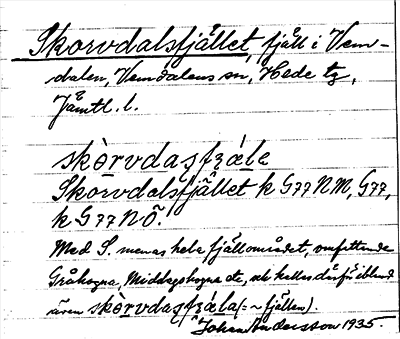 Skorvdalsfjället, fjäll i Vem-
dalen, Vemdalens sn, Hede tg,
Jämtl. l.
skòrvdasfzǽle
Skorvdalsfjället k G77 NM, G77,
k G77 NÖ.
Med S. menas hela fjällområdet, omfattande
Gråhogna, Middagshogna etc, och kallas därför ibland
även skòrvdasfzǽla (= ~ fjällen).
Johan Andersson 1935.